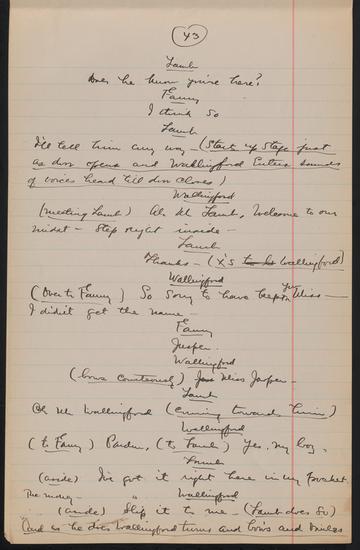 43
Lamb
Does he know you're here?
Fanny
I think so
Lamb
I'll tell him any way - (Starts up stage just
as door opens and Wallingford Enters sounds
of voices heard till door closes)
Wallingford
(meeting Lamb) Ah Mr Lamb, Welcome to our
midst - Step right inside -
Lamb
Thanks - (X's to Wallingford)
Wallingford
(Over to Fanny) So Sorry to have kept you Miss -
I didn't get the name -
Fanny
Jasper.
Wallingford
(bows courteously) Miss Jasper -
Lamb
Oh Mr Wallingford (coming towards him)
Wallingford
(to Fanny) Pardon, (to Lamb) Yes, my boy,
Lamb
(aside) I've got it right here in my pocket.
The money - " Wallingford
(aside) Slip it to me - (Lamb does so)
And as he does Wallingford turns and bows and smiles